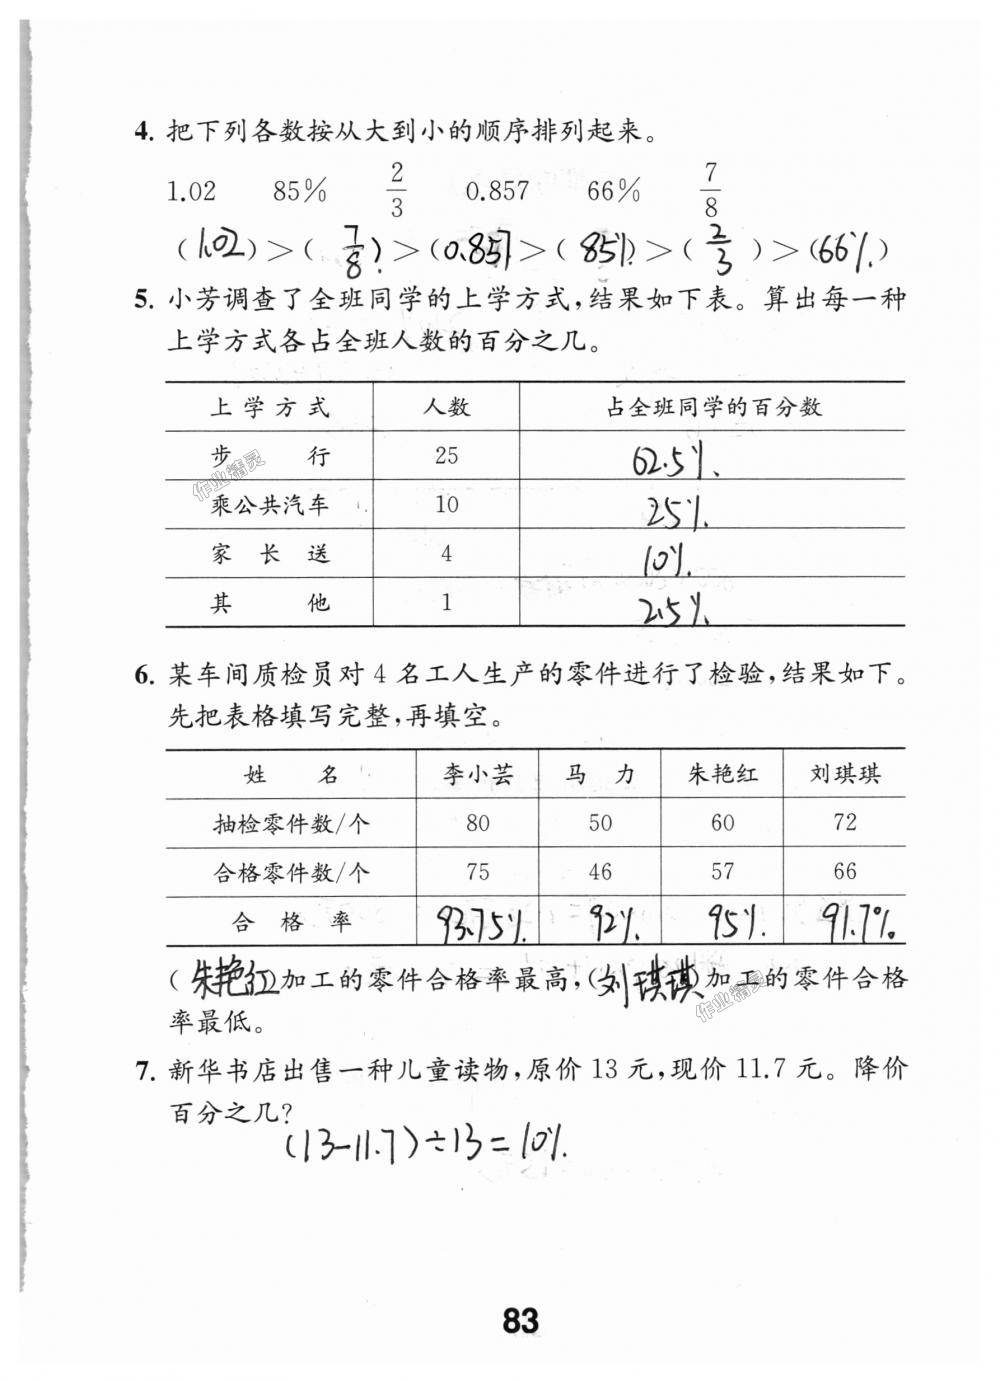 4. 把下列各数按从大到小的顺序排列起来。
1.02 85% 2/3 0.857 66% 7/8
(1.02)>(7/8)>(0.857)>(85%)>(2/3)>(66%)
5. 小芳调查了全班同学的上学方式,结果如下表。算出每一种
上学方式各占全班人数的百分之几。
上学方式 人数 占全班同学的百分数
步行 25 62.5%
乘公共汽车 10 25%
家长送 4 10%
其他 1 2.5%
作业精灵
6. 某车间质检员对4名工人生产的零件进行了检验,结果如下。
先把表格填写完整,再填空。
姓名 李小芸 马力 朱艳红 刘琪琪
抽检零件数/个 80 50 60 72
合格零件数/个 75 46 57 66
合格率 93.75% 92% 95% 91.7%
(朱艳红)加工的零件合格率最高,(刘琪琪)加工的零件合格
率最低。
作业精灵
7. 新华书店出售一种儿童读物,原价13元,现价11.7元。降价
百分之几?
(13-11.7)÷13=10%
83